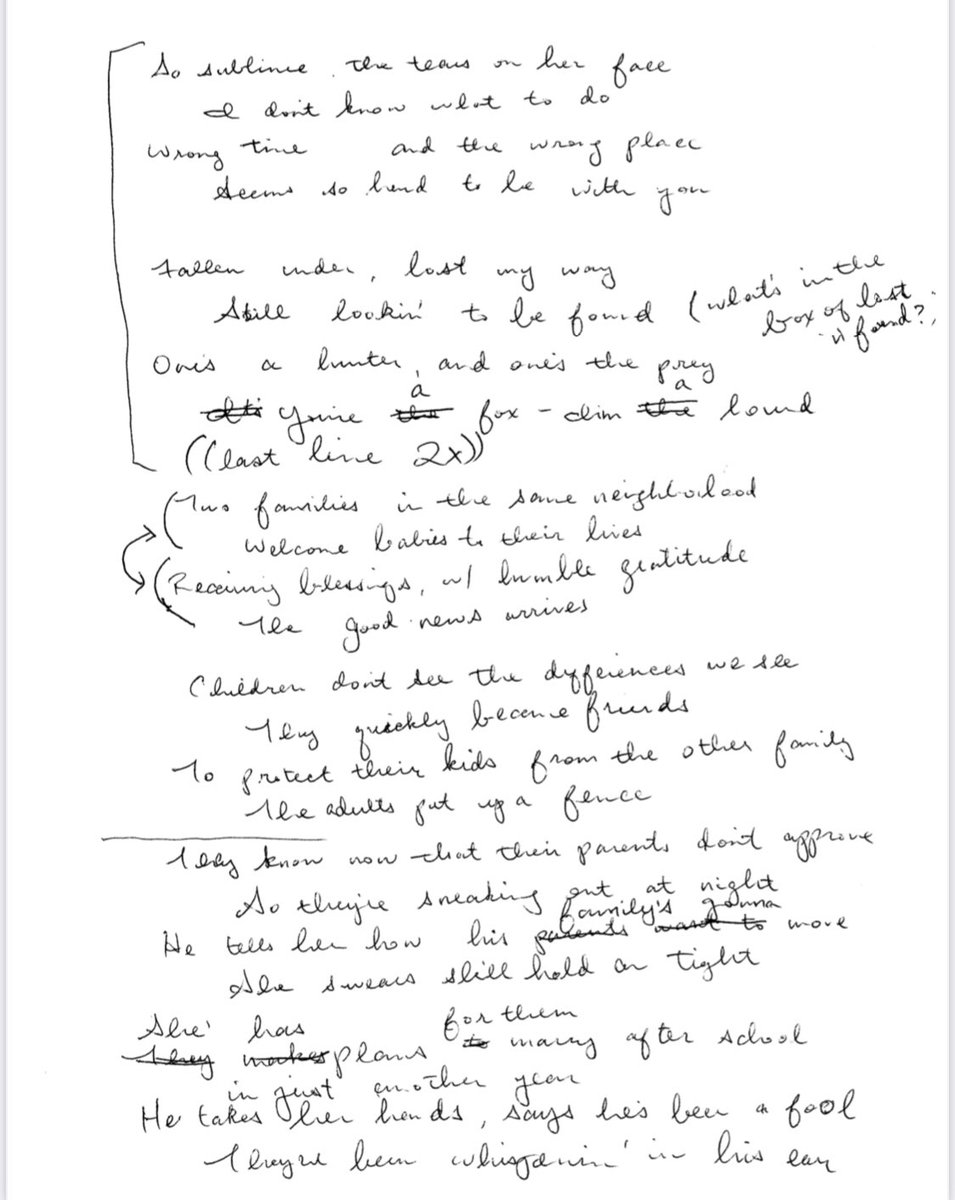 So sublime, the tears on her face
I don't know what to do
Wrong time and the wrong place
Seems so hard to be with you
Fallen under, lost my way
Still lookin' to be found (what's in the box of lost 'n found?)
One's a hunter, and one's the prey
You're a fox - dim a hound
((last line 2x))
Two families in the same neighborhood
Welcome babies to their lives
Receiving blessings, w/ humble gratitude
The good news arrives
Children don't see the differences we see
They quickly become friends
To protect their kids from the other family
The adults put up a fence
They know now that their parents don't approve
So they're sneaking out at night
He tells her how his family's gonna move
She swears she'll hold on tight
She has plans for them to marry after school
in just another year
He takes her hands, says he's been a fool
They've been whisperin' in his ear